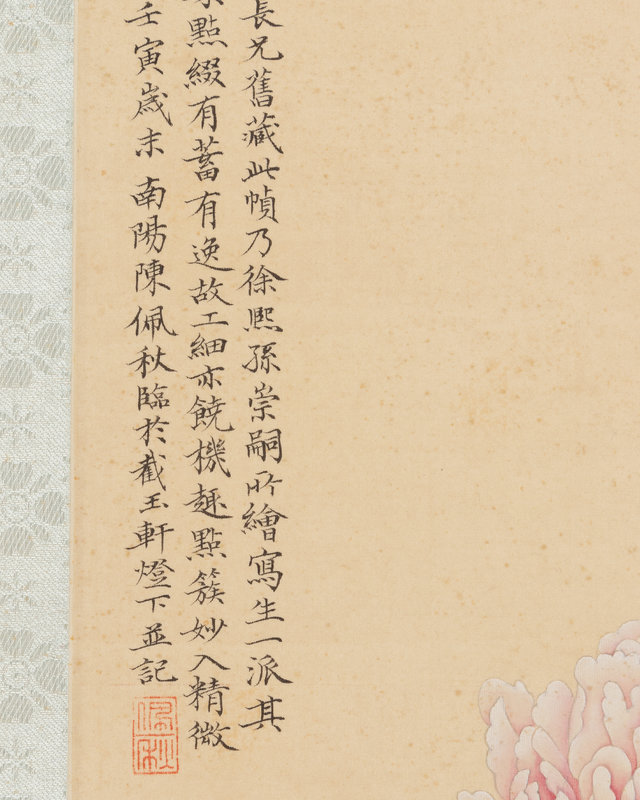 長兄舊藏此幀乃徐熙孫崇嗣所繪寫生一派其
點綴有蓄有逸故工細亦饒機趣點簇妙入精微
壬寅歲末南陽陳佩秋臨於截玉軒燈下並記
佩秋